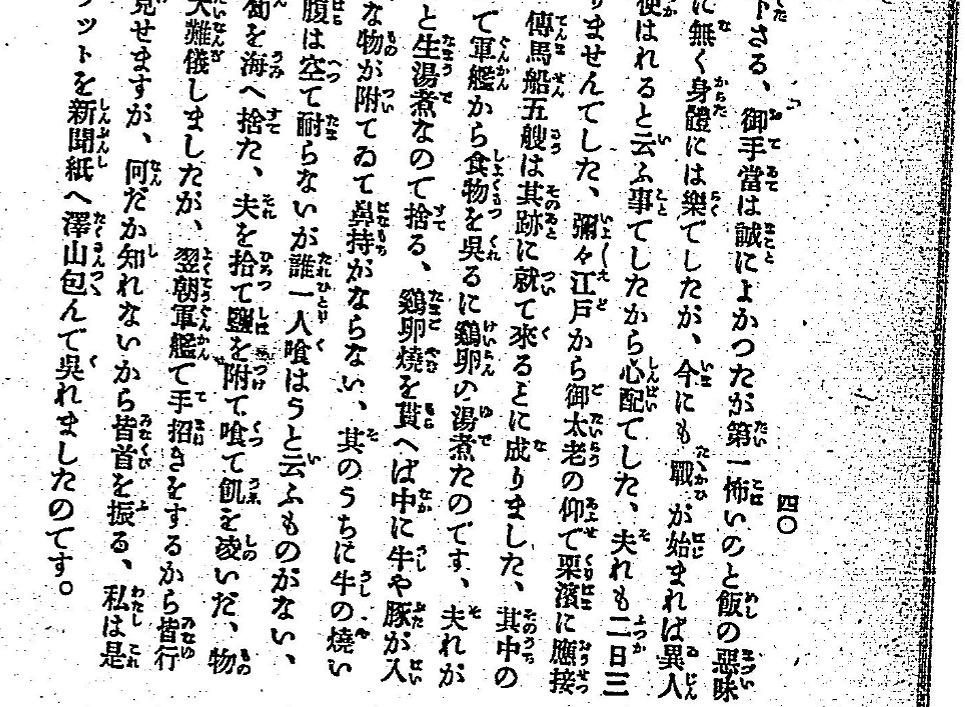 下さる、御手當は誠によかつたが第一怖いのと飯の惡味
に無く身體には樂でしたが、今にも戰が始まれば異人
使はれると云ふ事てしたから心配てした、夫れも二日三
りませんてした、彌々江戸から御太老の仰で栗濱に應接
傳馬船五艘は其跡に就て來るとに成りました、其中の
て軍艦から食物を呉るに鷄卵の湯煮たのです、夫れが
と生湯煮なのて捨る、鷄卵燒を貰へば中に牛や豚が入
な物が附てゐて鼻持がならない、其のうちに牛の燒い
腹は空て耐らないが誰一人喰はうと云ふものがない、
を海へ捨た、夫を拾て鹽を附て喰て飢を凌いだ、物
大難儀しましたが、翌朝軍艦て手招きをするから皆行
見せますが、何だか知れないから皆首を振る、私は是
ットを新聞紙へ澤山包んて呉れましたのてす。
四〇